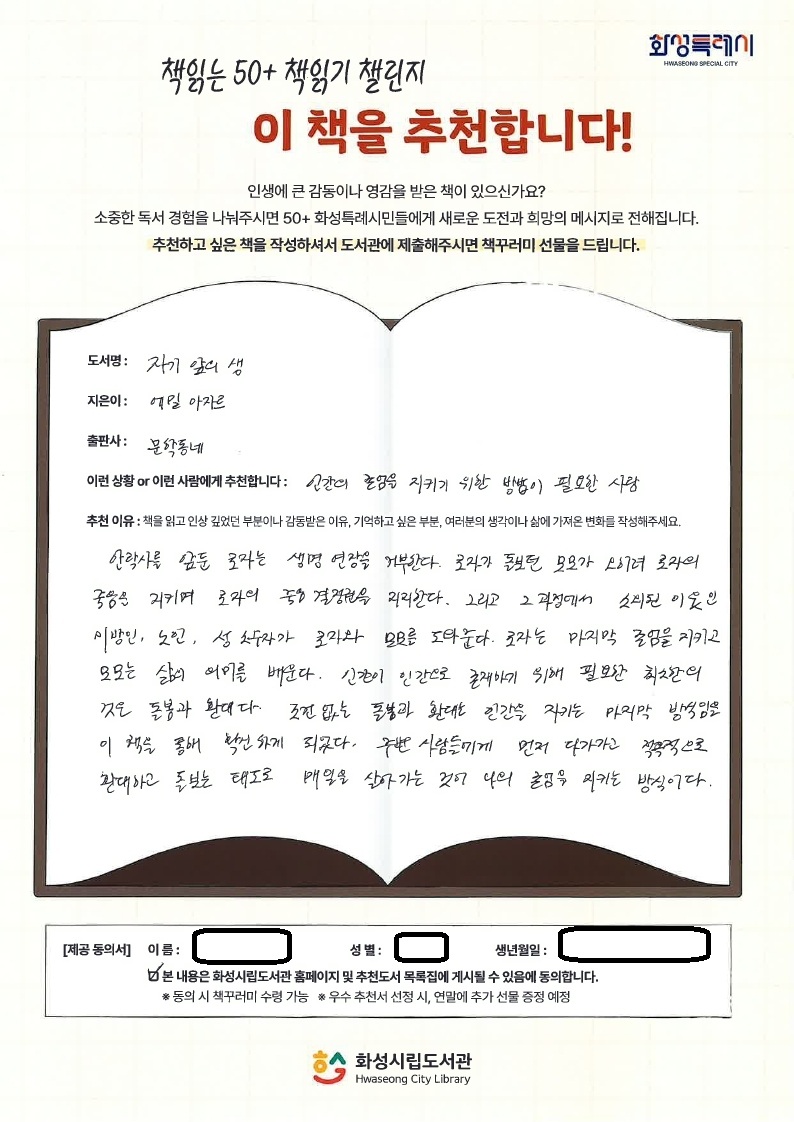 화성특례시
HWASEONG SPECIAL CITY
책읽는 50+ 책읽기 챌린지
이 책을 추천합니다!
인생에 큰 감동이나 영감을 받은 책이 있으신가요?
소중한 독서 경험을 나눠주시면 50+ 화성특례시민들에게 새로운 도전과 희망의 메시지로 전해집니다.
추천하고 싶은 책을 작성하셔서 도서관에 제출해주시면 책꾸러미 선물을 드립니다.
도서명 : 자기 앞의 생
지은이 : 에밀 아자르
출판사 : 문학동네
이런 상황 or 이런 사람에게 추천합니다 : 인간의 존엄을 지키기 위한 방법이 필요한 사람
추천 이유 : 책을 읽고 인상 깊었던 부분이나 감동받은 이유, 기억하고 싶은 부분, 여러분의 생각이나 삶에 가져온 변화를 작성해주세요.
안락사를 앞둔 로자는 생명 연장을 거부한다. 로자가 돌보던 모모가 오히려 로자의
죽음을 지키며 로자의 죽음 결정권을 지지한다. 그리고 그 과정에서 소외된 이웃인
이방인, 노인, 성 소수자가 로자와 모모를 도와준다. 로자는 마지막 존엄을 지키고
모모는 삶의 의미를 배운다. 인간이 인간으로 존재하기 위해 필요한 최소한의
것은 돌봄과 환대다. 조건 없는 돌봄과 환대는 인간을 지키는 마지막 방식임을
이 책을 통해 확신하게 되었다. 주변 사람들에게 먼저 다가가고 적극적으로
환대하고 돌보는 태도로 매일을 살아가는 것이 나의 존엄을 지키는 방식이다.
[제공 동의서] 이 름 : 성 별 : 생년월일 :
본 내용은 화성시립도서관 홈페이지 및 추천도서 목록집에 게시될 수 있음에 동의합니다.
※ 동의 시 책꾸러미 수령 가능 ※ 우수 추천서 선정 시, 연말에 추가 선물 증정 예정
화성시립도서관
Hwaseong City Library